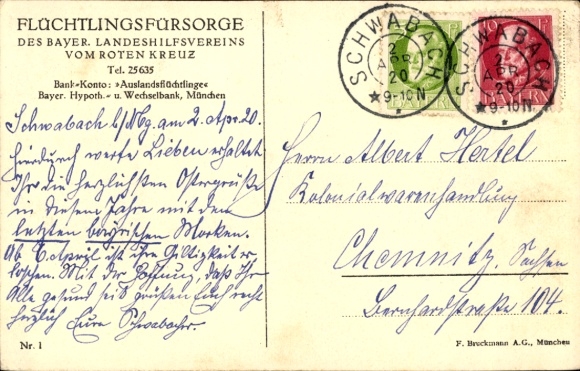 FLÜCHTLINGSFÜRSORGE
DES BAYER. LANDESHILFSVEREINS
VOM ROTEN KREUZ
Tel. 25635
Bank=Konto: »Auslandsflüchtlinge«
Bayer. Hypoth.= u. Wechselbank, München
Schwabach b/Nbg am 2. Apr. 20.
Hierdurch werte Lieben erhaltet
Ihr die herzlichsten Ostergrüße
in diesem Jahre mit den
letzten bayrischen Marken.
Ab 6. April ist ihre Giltigkeit er
loschen. Mit der Hoffnung, daß Ihr
Alle gesund seid grüßen Euch recht
herzlich Eure Schwabacher
Nr. 1
SCHWABACH
2
APR
20
9-10 N
SCHWABACH
2
APR
20
9-10 N
BAYERN
BAYERN
Herrn Albert Hertel
Kolonialwarenhandlung
Chemnitz, Sachsen
Bernhardstraße 104.
F. Bruckmann A.G., München